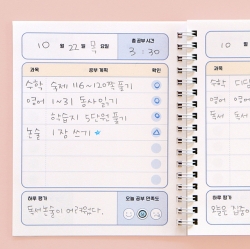 10 월 22 일 목 요일
총 공부 시간
3 : 30
과목 공부 계획 확인
수학 숙제 116~120쪽 풀기
영어 1~31 동사 읽기
학습지 5단원 풀기
논술 1장 쓰기
하루 평가
독서논술이 어려웠다.
오늘 공부 만족도
10
과목
수학
영어
독서
하루 평가